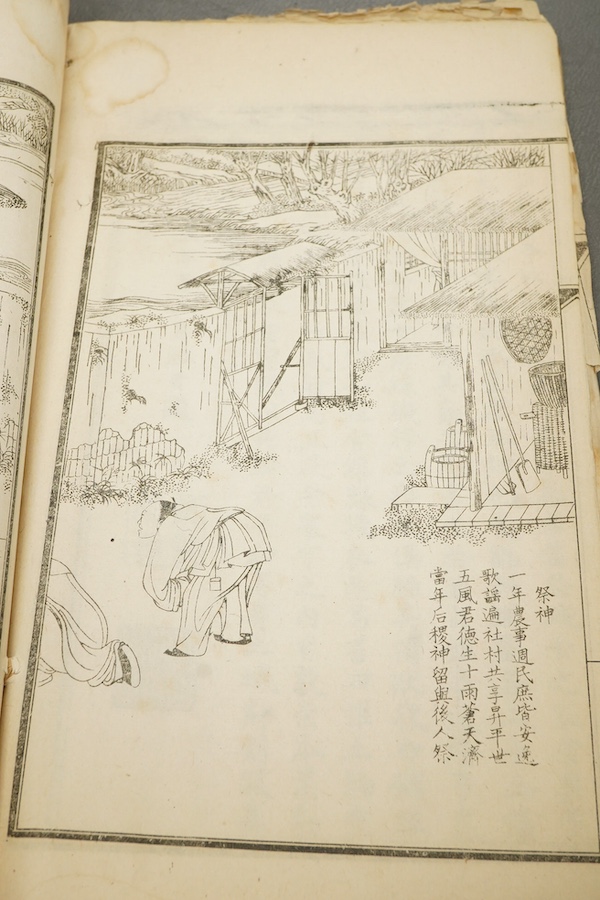 祭神
一年農事週民庶皆安逸
歌謡遍社村共享昇平世
五風君徳生十雨蒼天濟
當年后稷神留與後人祭